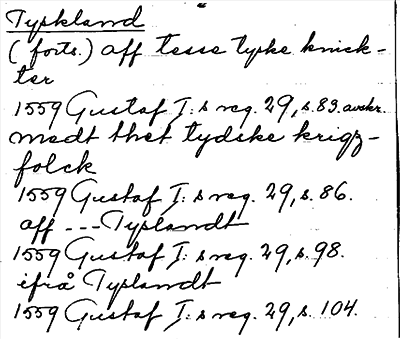 Tyskland
(forts.) aff tesse tyske knick-
ter
1559 Gustaf I:s reg. 29, s. 83. avskr.
medt thet tydske krigz-
folck
1559 Gustaf I:s reg. 29, s. 86.
aff --- Tysslandt
1559 Gustaf I:s reg. 29, s. 98.
ifrå Tysslandt
1559 Gustaf I:s reg. 29, s. 104.